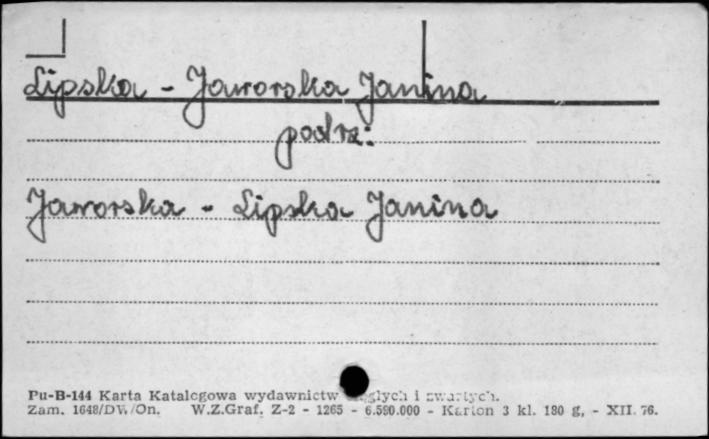 Lipska - Jaworska Janina
podrz:
Jaworska - Lipska Janina
Pu-B-144 Karta Katalogowa wydawnictw ciągłych i zwartych.
Zam. 1648/DW/On. W.Z.Graf. Z-2 - 1265 - 6.590.000 - Karton 3 kl. 180 g, - XII. 76.